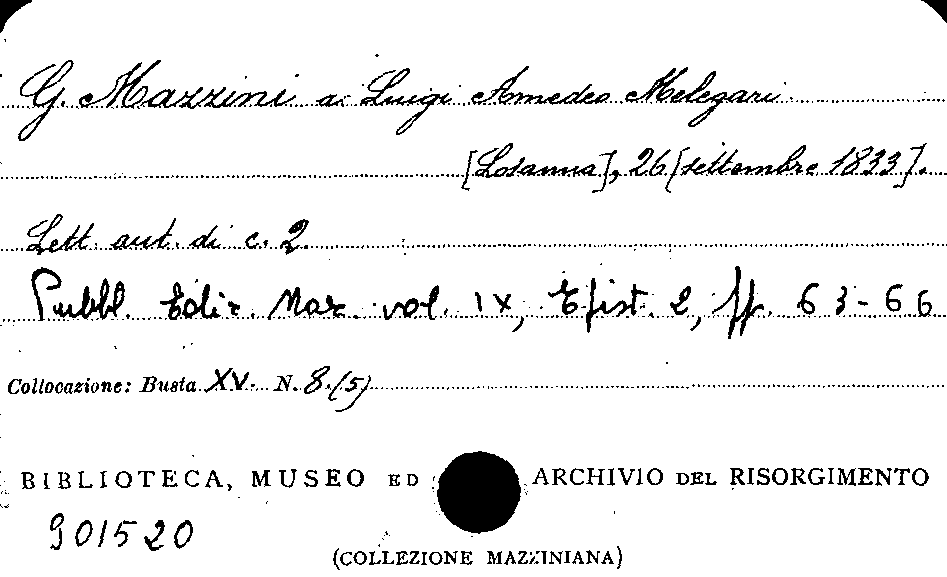 G. Mazzini a Luigi Amedeo Melegari
[Losanna], 26 [settembre 1833].
Lett. aut. di c. 2.
Pubbl. Ediz. Naz. vol. IX, Epist. 2, pp. 63-66
Collocazione: Busta XV. N. 8.(5)
BIBLIOTECA, MUSEO ED ARCHIVIO DEL RISORGIMENTO
901520
(COLLEZIONE MAZZINIANA)